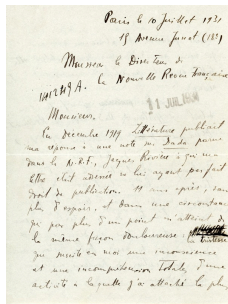 Paris le 10 Juillet 1931
15 Avenue Junot (18e)
Monsieur le Directeur de
la Nouvelle Revue Française
11 JUIL 1931
Monsieur,
En décembre 1919 Littérature publiait
ma réponse à une note sur Dada parue
dans la N.R.F., Jacques Rivière à qui ma
lettre était adressée ne lui ayant pas fait
droit de publication. 11 ans après, sans
plus d'espoir, et dans une circonstance
qui par plus d'un point m'atteint de
la même façon douloureuse :
que suscite en moi une inconscience
et une incompréhension totales, d'une
activité à laquelle j'ai attaché le plus